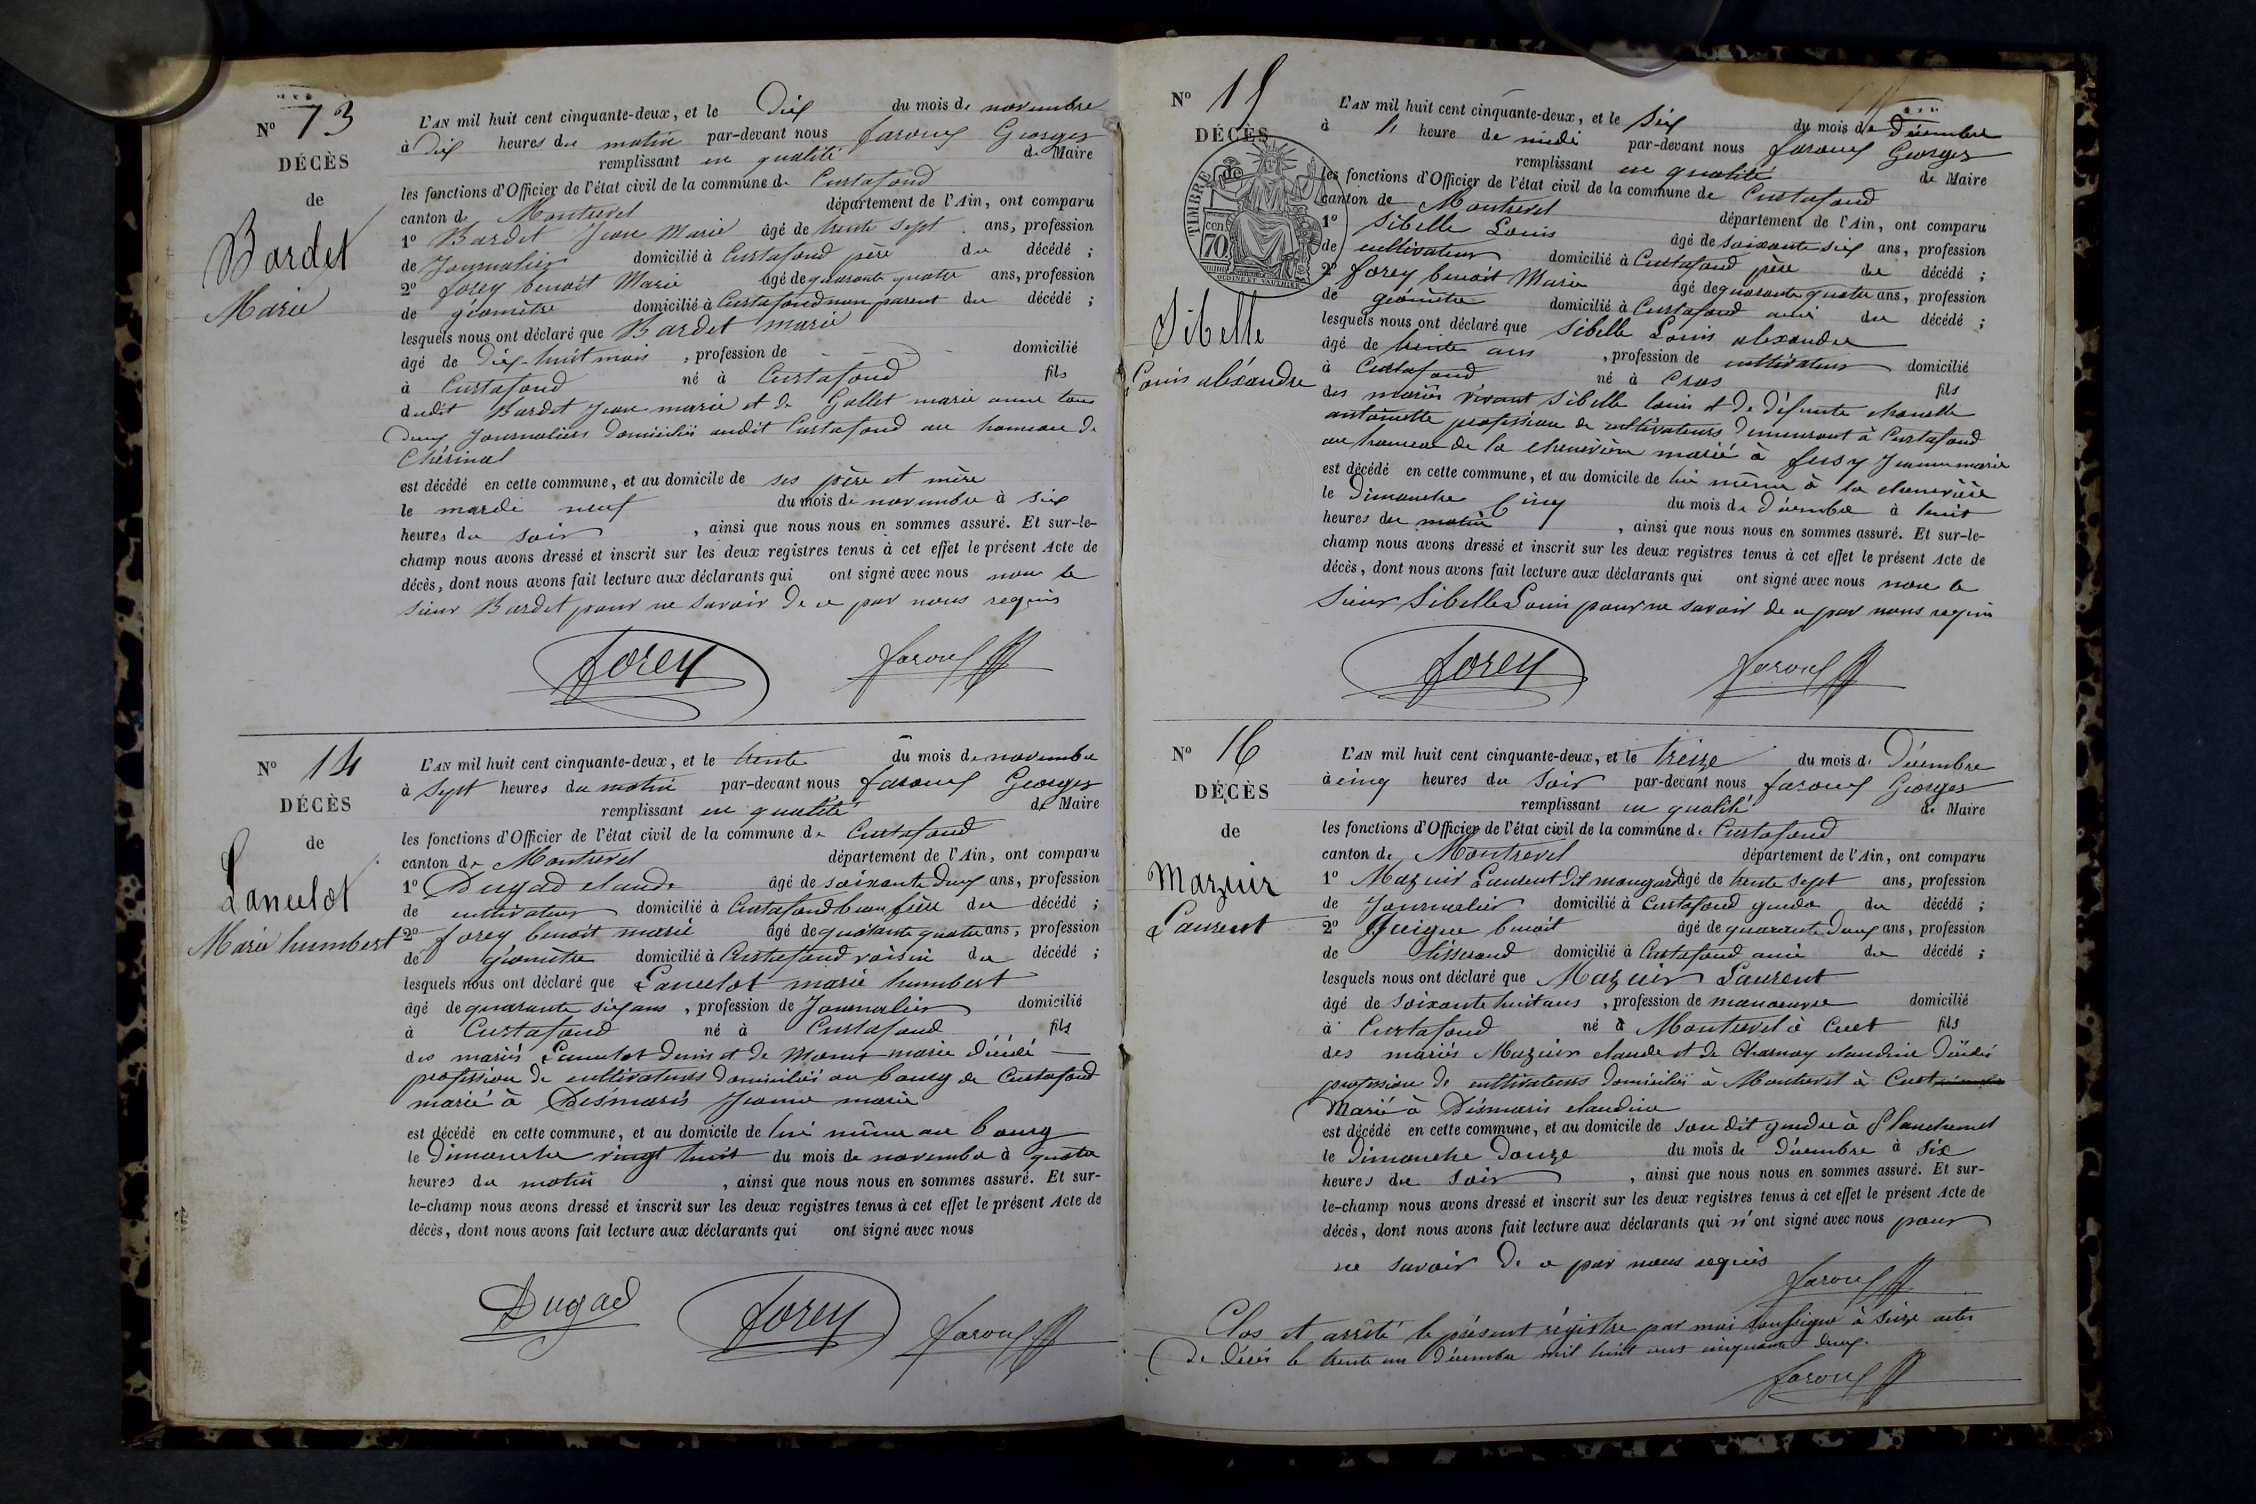 N° 13
DÉCÈS
de
Bardet
Marie
L'AN mil huit cent cinquante-deux, et le Dix du mois de novembre
à Dix heures du matin par-devant nous faroux Georges
remplissant en qualité de Maire
les fonctions d'Officier de l'état civil de la commune de Curtafond
canton de Montrevel département de l'Ain, ont comparu
1° Bardet Jean Marie âgé de trente sept ans, profession
de Journalier domicilié à Curtafond père du décédé ;
2° forey benoit Marie âgé de quarante quatre ans, profession
de géomètre domicilié à Curtafond non parent du décédé ;
lesquels nous ont déclaré que Bardet marie
âgé de Dix-huit mois , profession de domicilié
à Curtafond né à Curtafond fils
dudit Bardet Jean-marie et de Gollet marie anne tous
Deux Journaliers domiciliés audit Curtafond au hameau de
Chérinal
est décédé en cette commune, et au domicile de ses père et mère
le mardi neuf du mois de novembre à six
heures du soir , ainsi que nous nous en sommes assuré. Et sur-le-
champ nous avons dressé et inscrit sur les deux registres tenus à cet effet le présent Acte de
décès, dont nous avons fait lecture aux déclarants qui ont signé avec nous non le
sieur Bardet pour ne savoir de ce par nous requis
forey faroux
N° 14
DÉCÈS
de
Lancelot
Marie humbert
L'AN mil huit cent cinquante-deux, et le trente du mois de novembre
à sept heures du matin par-devant nous faroux Georges
remplissant en qualité de Maire
les fonctions d'Officier de l'état civil de la commune de Curtafond
canton de Montrevel département de l'Ain, ont comparu
1° Dugad claude âgé de soixante Deux ans, profession
de cultivateur domicilié à Curtafond beau frère du décédé ;
2° forey benoit marie âgé de quarante quatre ans, profession
de géomètre domicilié à Curtafond voisin du décédé ;
lesquels nous ont déclaré que Lancelot marie humbert
âgé de quarante six ans , profession de Journalier domicilié
à Curtafond né à Curtafond fils
des mariés Lancelot denis et de marie décédé
profession de cultivateurs domiciliés au bourg de Curtafond
marié à Desmaris Jeanne marie
est décédé en cette commune, et au domicile de lui même au bourg
le Dimanche vingt huit du mois de novembre à quatre
heures du matin , ainsi que nous nous en sommes assuré. Et sur-
le-champ nous avons dressé et inscrit sur les deux registres tenus à cet effet le présent Acte de
décès, dont nous avons fait lecture aux déclarants qui ont signé avec nous
Dugad forey faroux
N° 15
DÉCÈS
de
TIMBRE
70
Sibelle
Louis aléxandre
L'AN mil huit cent cinquante-deux, et le Six du mois de Décembre
à heure de midi par-devant nous faroux Georges
remplissant en qualité de Maire
les fonctions d'Officier de l'état civil de la commune de Curtafond
canton de Montrevel département de l'Ain, ont comparu
1° Sibelle Louis âgé de soixante six ans, profession
de cultivateur domicilié à Curtafond père du décédé ;
2° forey benoit Marie âgé de quarante quatre ans, profession
de géomètre domicilié à Curtafond ami du décédé ;
lesquels nous ont déclaré que Sibelle Louis alexandre
âgé de trente ans , profession de cultivateur domicilié
à Curtafond né à Cras fils
des mariés vivant Sibelle louis et de défunte
antoinette profession de cultivateurs demeurant à Curtafond
au hameau de la chenevière marié à fusy Jeanne marie
est décédé en cette commune, et au domicile de lui même à la chenevière
le Dimanche cinq du mois de Décembre à huit
heures du matin , ainsi que nous nous en sommes assuré. Et sur-le-
champ nous avons dressé et inscrit sur les deux registres tenus à cet effet le présent Acte de
décès, dont nous avons fait lecture aux déclarants qui ont signé avec nous non le
Sieur Sibelle Louis pour ne savoir de ce par nous requis
forey faroux
N° 16
DÉCÈS
de
Mazuir
Laurent
L'AN mil huit cent cinquante-deux, et le treize du mois de Décembre
à cinq heures du Soir par-devant nous faroux Georges
remplissant en qualité de Maire
les fonctions d'Officier de l'état civil de la commune de Curtafond
canton de Montrevel département de l'Ain, ont comparu
1° Mazuir Laurent dit âgé de trente sept ans, profession
de Journalier domicilié à Curtafond gendre du décédé ;
2° Guigue benoit âgé de quarante Deux ans, profession
de tisserand domicilié à Curtafond ami du décédé ;
lesquels nous ont déclaré que Mazuir Laurent
âgé de soixante huit ans , profession de manoeuvre domicilié
à Curtafond né à Montrevel à Cuet fils
des mariés Mazuir claude et de Charnay claudine Décédés
profession de cultivateurs domiciliés à Montrevel à Cuet
Marié à Désmaris claudine
est décédé en cette commune, et au domicile de son dit gendre à
le Dimanche Douze du mois de Décembre à Six
heures du Soir , ainsi que nous nous en sommes assuré. Et sur-
le-champ nous avons dressé et inscrit sur les deux registres tenus à cet effet le présent Acte de
décès, dont nous avons fait lecture aux déclarants qui n'ont signé avec nous pour
ne savoir de ce par nous requis
faroux
Clos et arrêté le présent régistre par moi soussigné à Seize actes
De Décès le trente un Décembre mil huit cent cinquante Deux.
faroux